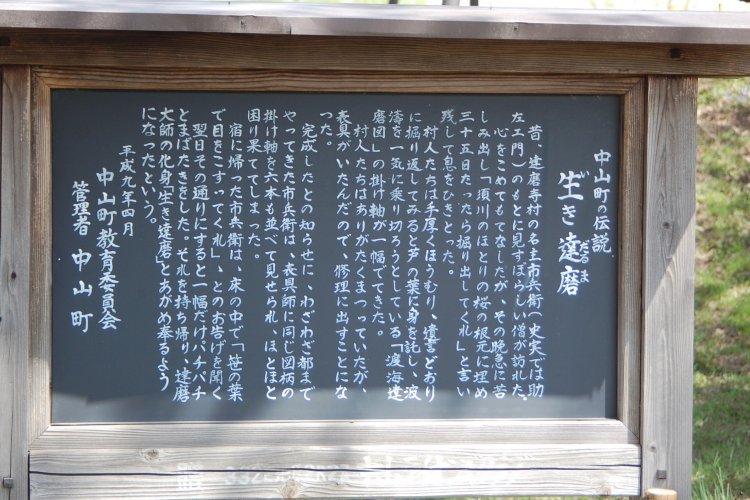 中山町の伝説
生き達磨
だるま
昔、達磨寺村の名主市兵衛（史実では助
左エ門）のもとに見すぼらしい僧が訪れた。
心をこめてもてなしたが、その晩急に苦
しみ出し「須川のほとりの桜の根元に埋め
三十五日たったら掘り出してくれ」と言い
残して息をひきとった。
村人たちは手厚くほうむり、遺言どおり
に掘り返してみると芦の葉に身を託し、波
濤を一気に乗り切ろうとしている「渡海達
磨図」の掛け軸が一幅でてきた。
村人たちはありがたくまつっていたが、
表具がいたんだので、修理に出すことにな
った。
完成したとの知らせに、わざわざ都まで
やってきた市兵衛は、表具師に同じ図柄の
掛け軸を六本も並べて見せられ、ほとほと
困り果ててしまった。
宿に帰った市兵衛は、床の中で「笹の葉
で目をこすってくれ」、とのお告げを聞く
翌日その通りにすると一幅だけパチパチ
とまばたきをした。それを持ち帰り、達磨
大師の化身「生き達磨」とあがめ奉るよう
になったという。
平成九年四月
中山町教育委員会
管理者 中山町